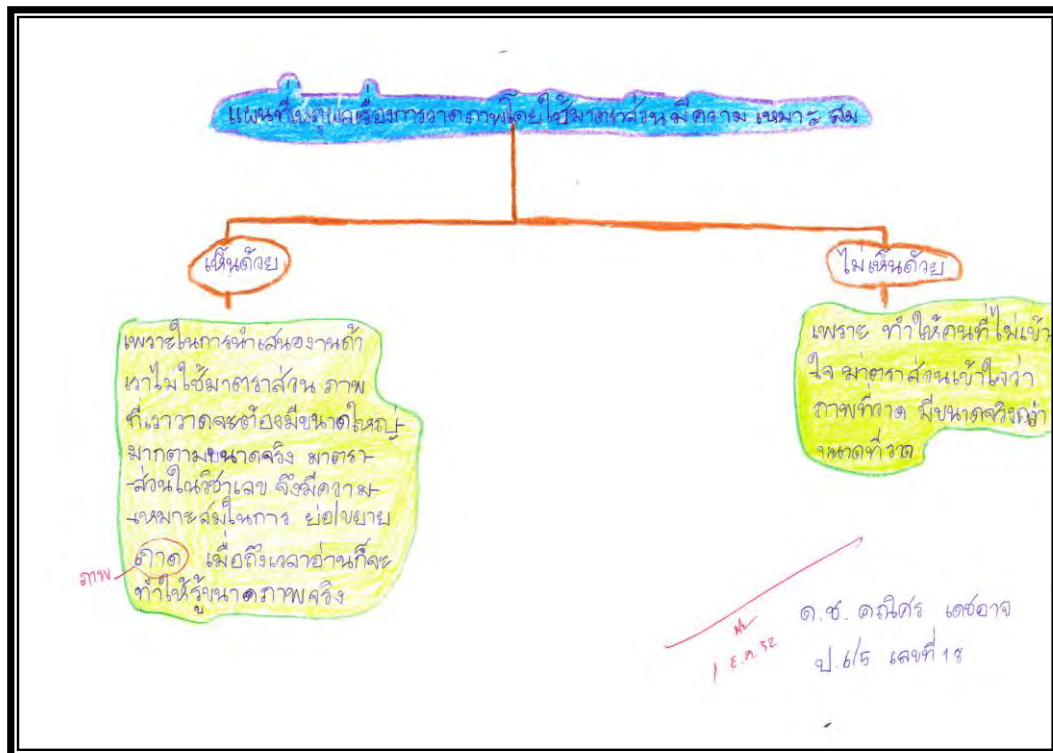 แผนที่เหตุผลเรื่องการวาดภาพโดยใช้มาตราส่วนมีความ เหมาะ สม
เห็นด้วย
ไม่เห็นด้วย
เพราะในการนำเสนองานถ้า
เราไม่ใช้มาตราส่วน ภาพ
ที่เราวาดจะต้องมีขนาดใหญ่
มากตามขนาดจริง มาตรา-
-ส่วนในวิชาเลข จึงมีความ-
-เหมาะสมในการ ย่อ/ขยาย
ภาด เมื่อถึงเวลาอ่านก็จะ
ทำให้รู้ขนาดภาพจริง
ภาพ
เพราะ ทำให้คนที่ไม่เข้า
ใจ มาตราส่วนเข้าใจว่า
ภาพที่วาด มีขนาดจริง
ขนาดที่วาด
1 ธ.ค. 52
ด.ช. คณิศร เดชอาจ
ป.6/5 เลขที่ 18